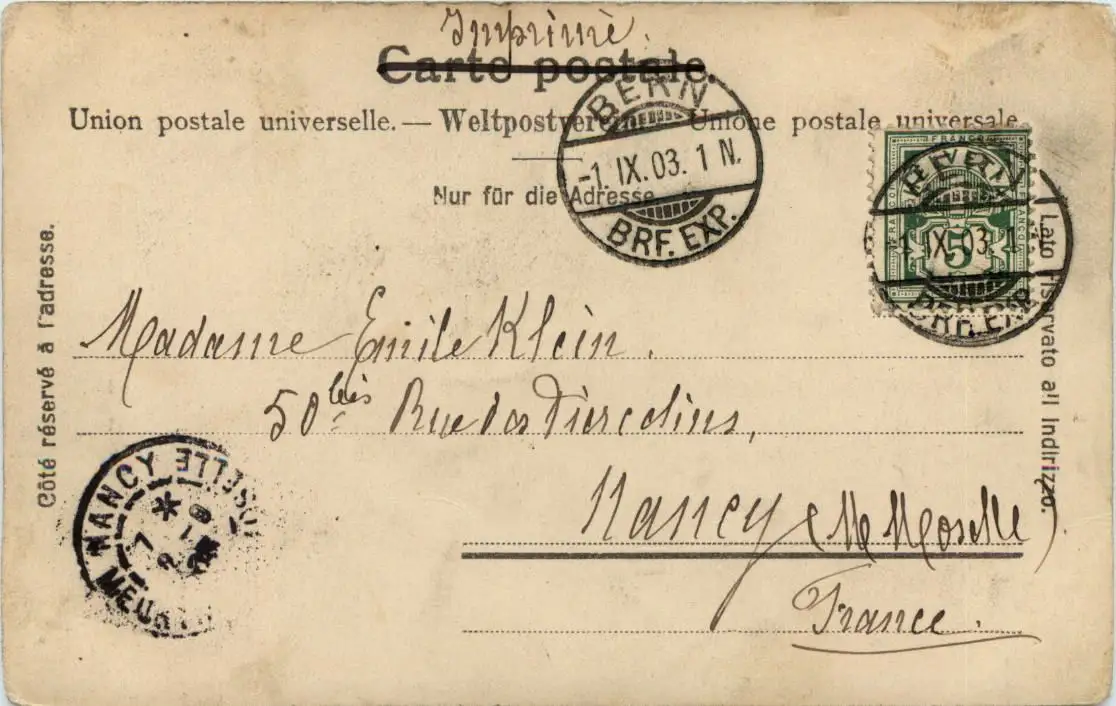 Imprimé.
Carte postale.
Union postale universelle. — Weltpostverein — Unione postale universale
Nur für die Adresse.
BERN
-1. IX. 03. 1 N.
BRF. EXP.
FRANCO
5
BERN
1. IX. 03
BRF. EXP.
Côté réservé à l'adresse.
Lato riservato all' Indirizzo.
Madame Emile Klein.
50 bis Rue des
Nancy (M Moselle)
France.
NANCY
MEUR OSELLE